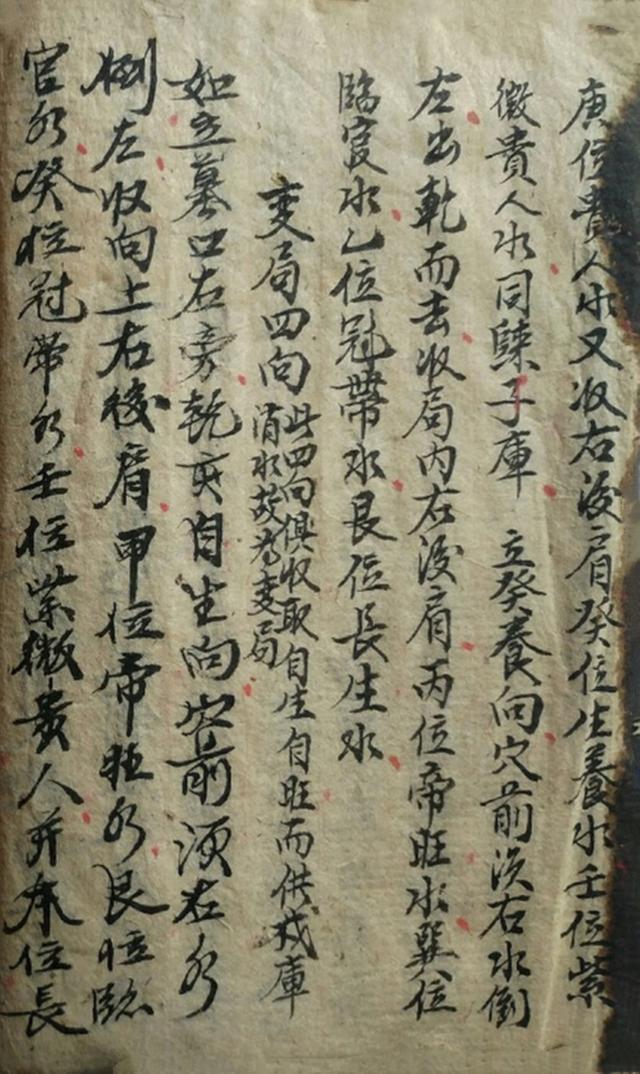 庚位貴人水又收右後肩癸位生養水壬位紫
微貴人水同歸子庫 立癸養向穴前須右水倒
左出乾而去收局内右後肩丙位帝旺水巽位
臨官水乙位冠帶水艮位長生水
变局四向此四向俱收取自生自旺而供戌庫
消水故為变局
如立墓口右旁乾亥自生向穴前須右水
倒左收向上右後肩甲位帝旺水艮位臨
官水癸位冠帶水壬位紫微貴人并位長